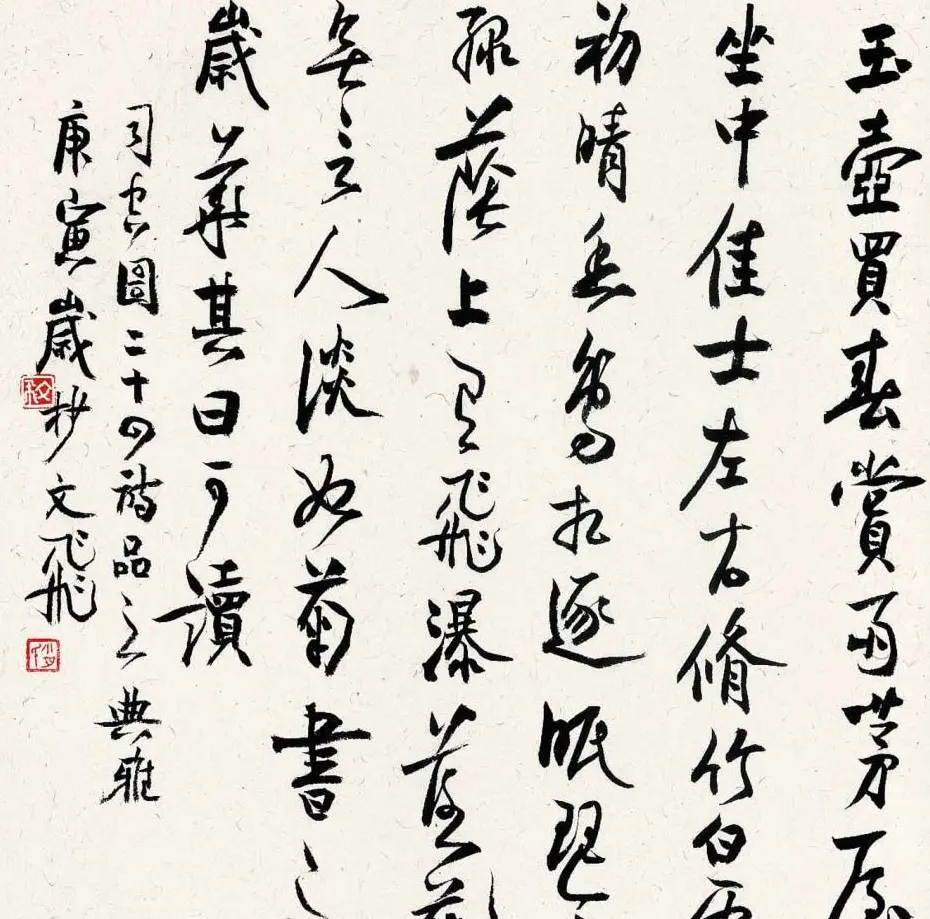 玉壺買春賞雨茅屋
坐中佳士左右脩竹白雲
初晴幽鳥相逐眠琴
綠蔭上有飛瀑落花
無言人淡如菊書之
歲華其曰可讀
司空圖二十四詩品之典雅
庚寅歲杪文飛